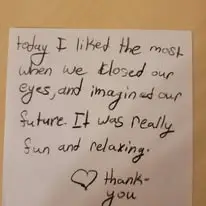 today I liked the most
when we closed our
eyes, and imagined our
future. It was really
fun and relaxing.
♡ thank-
you